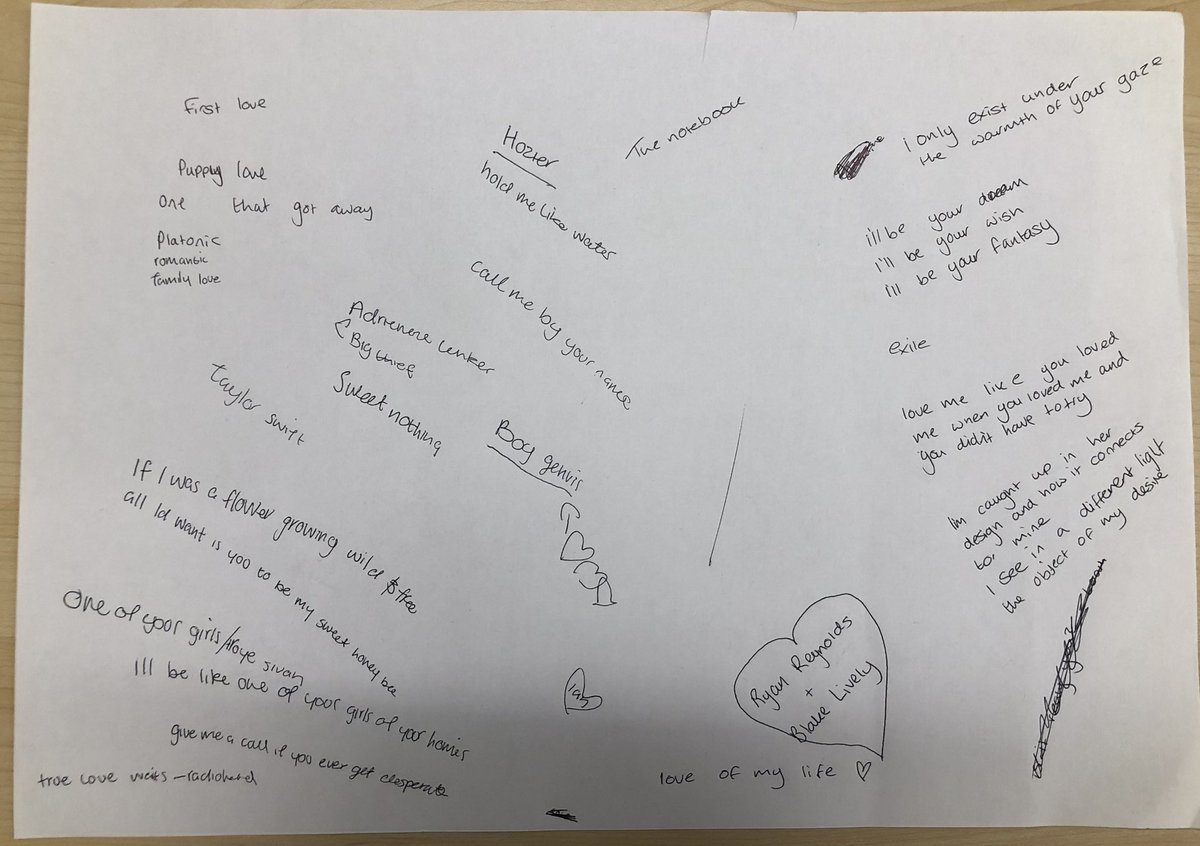 First love
Puppy love
One that got away
Platonic
romantic
family love
Hozier
hold me like water
The notebook
call me by your name
Adrienne Lenker
Big thief
Sweet nothing
taylor swift
Boy genius
If I was a flower growing wild & free
all Id want is you to be my sweet honey bee
One of your girls/troye sivan
I'll be like one of your girls of your homies
give me a call if you ever get desperate
true love waits - radiohead
i only exist under
the warmth of your gaze
i'll be your dream
i'll be your wish
i'll be your fantasy
exile
love me like you loved
me when you loved me and
you didn't have to try
Im caught up in her
design and how it connects
to mine
I see in a different light
the object of my desire
Ryan Reynolds
+
Blake Lively
love of my life ♡